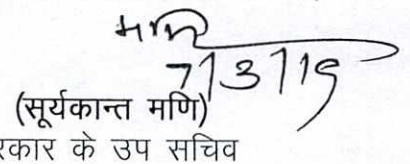 मणि
7/3/19
(सूर्यकान्त मणि)
रकार के उप सचिव